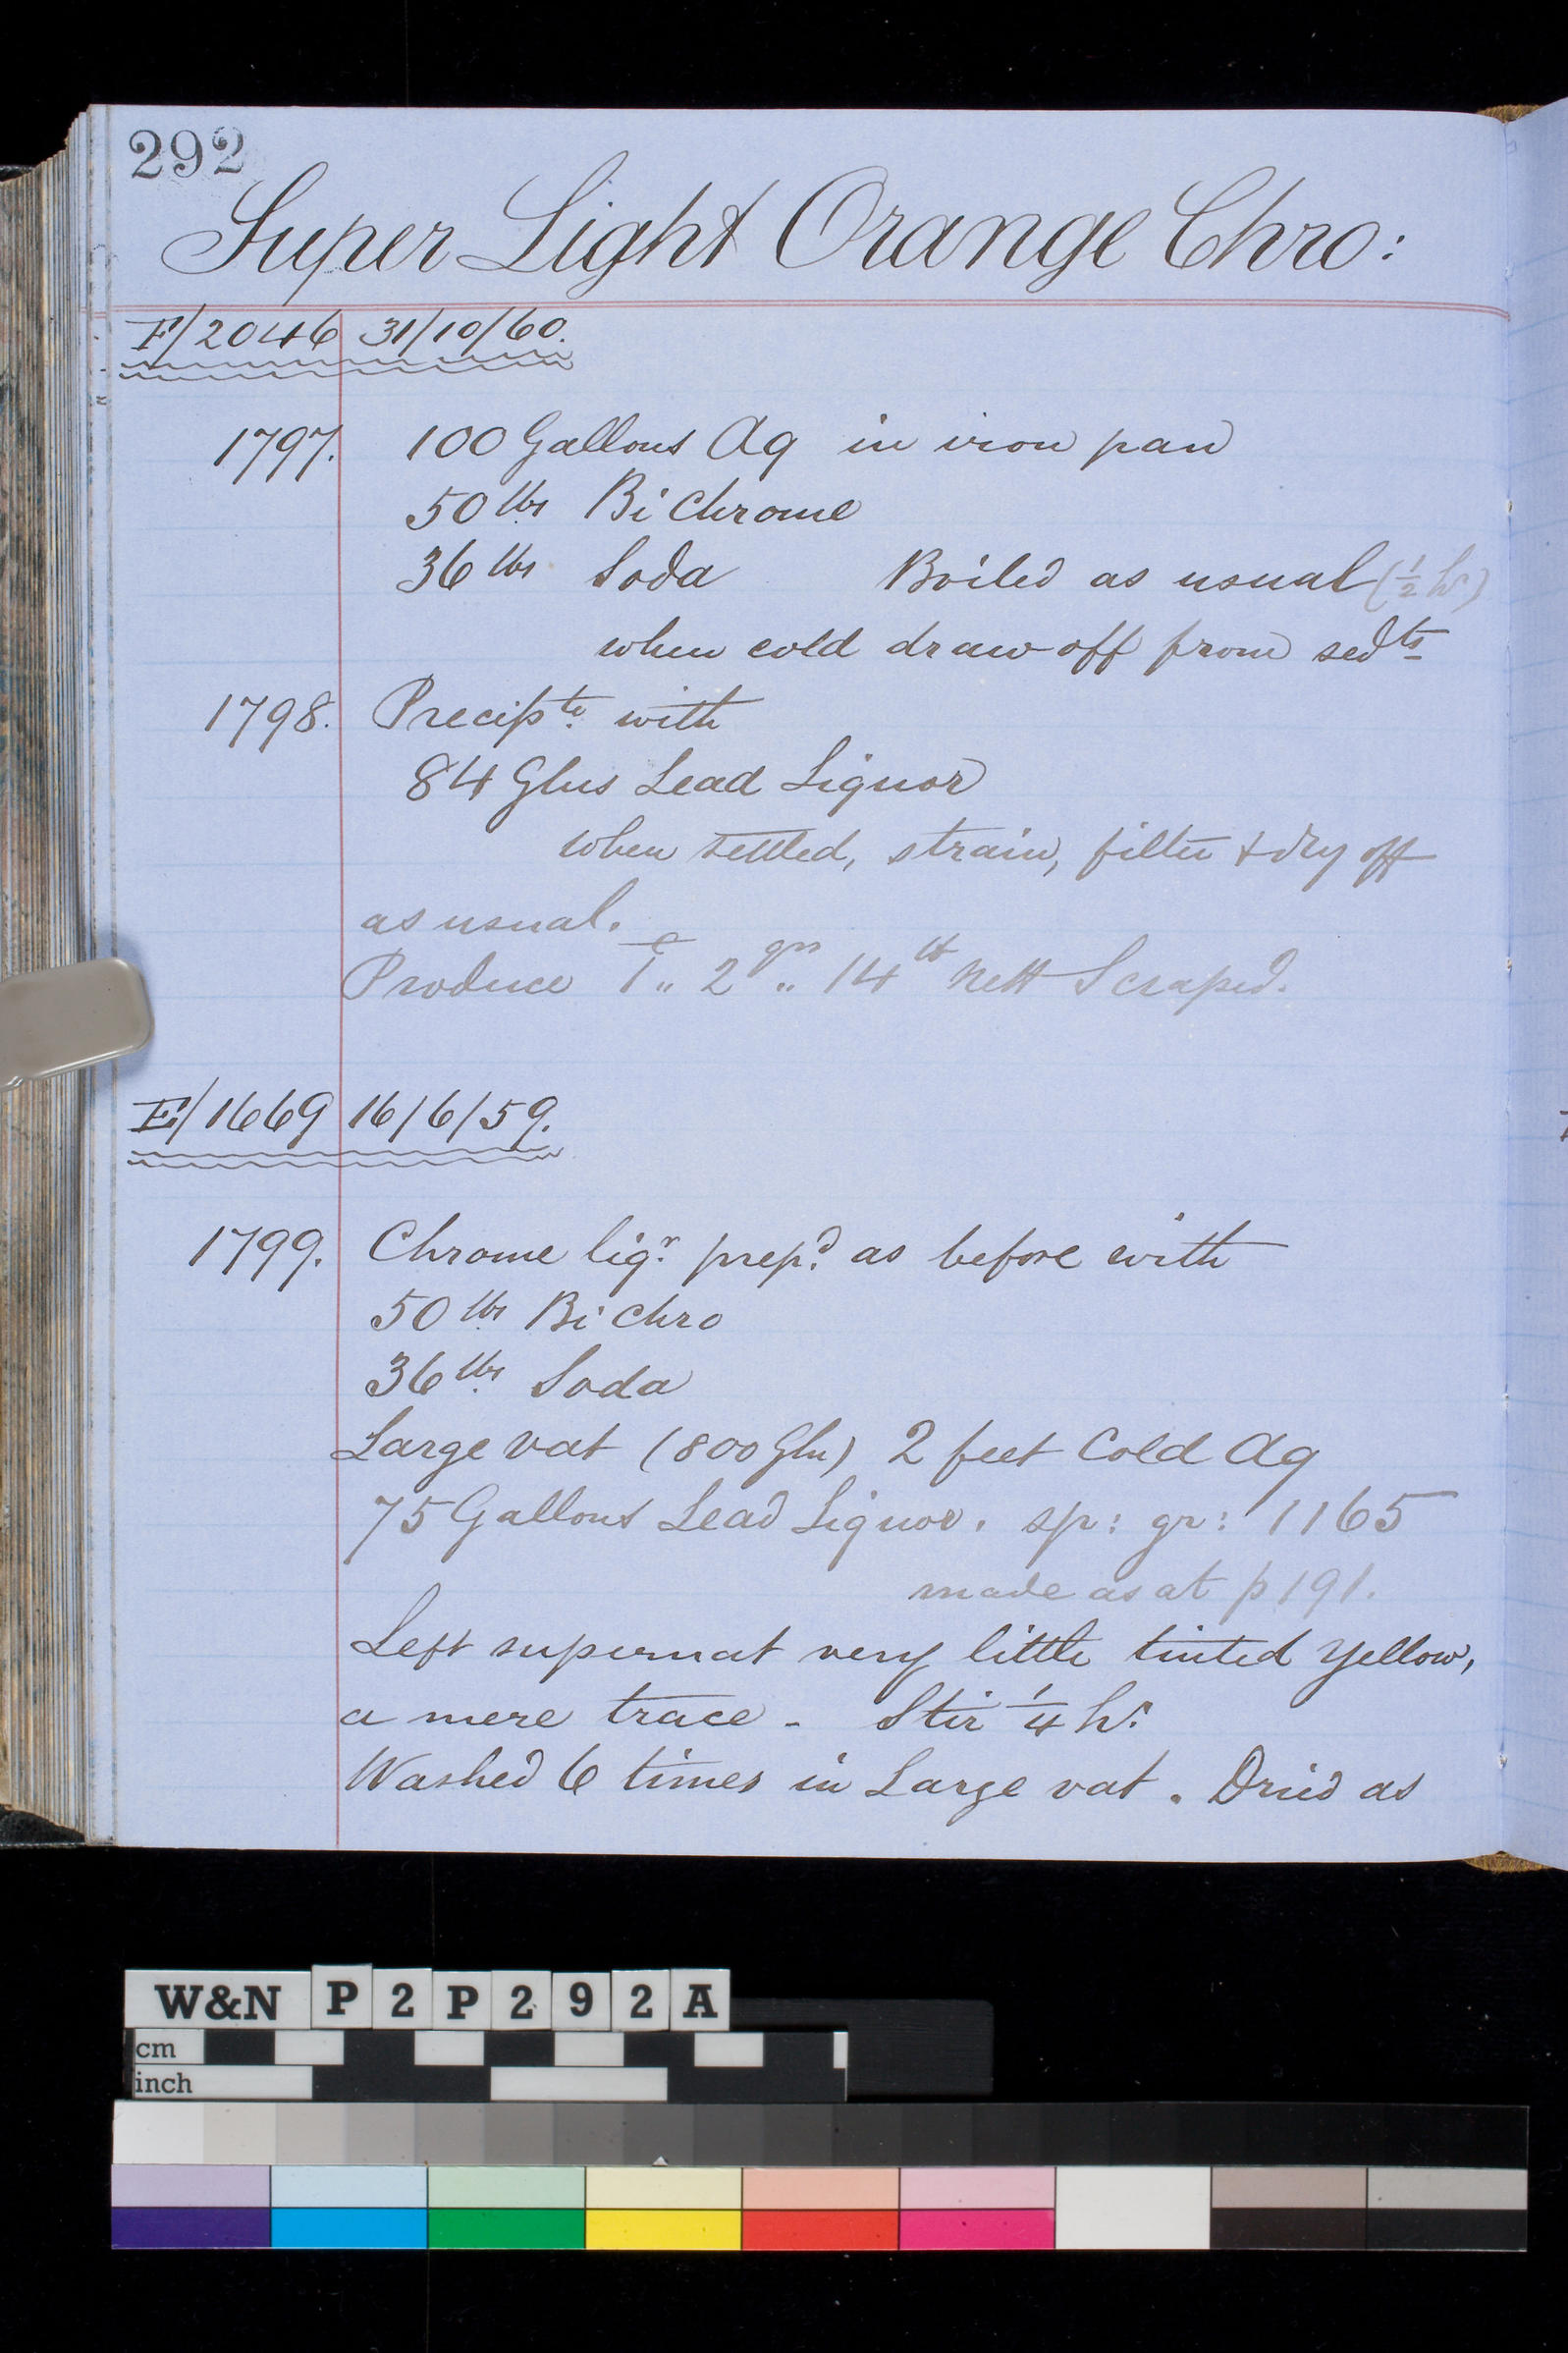 292
Super Light Orange Chro:
F/2046 31/10/60.
1797. 100 Gallons Aq in iron pan
50 lbs Bi Chrome
36 lbs Soda Boiled as usual (½ hr)
when cold draw off from sedts
1798. Precipte with
84 Glns Lead Liquor
when settled, strain, filter & dry off
as usual.
Produce 1c „ 2 qrs „ 14 lb nett Scraped.
E/1669 16/6/59.
1799. Chrome liqr. prepd. as before with
50 lbs Bi Chro
36 lbs Soda
Large vat (800 Gln) 2 feet Cold Aq
75 Gallons Lead Liquor. sp: gr: 1165
made as at p 191.
Left supernat very little tinted yellow,
a mere trace - Stir ¼ hr.
Washed 6 times in Large vat. Dried as
W&N P2P292A
cm
inch